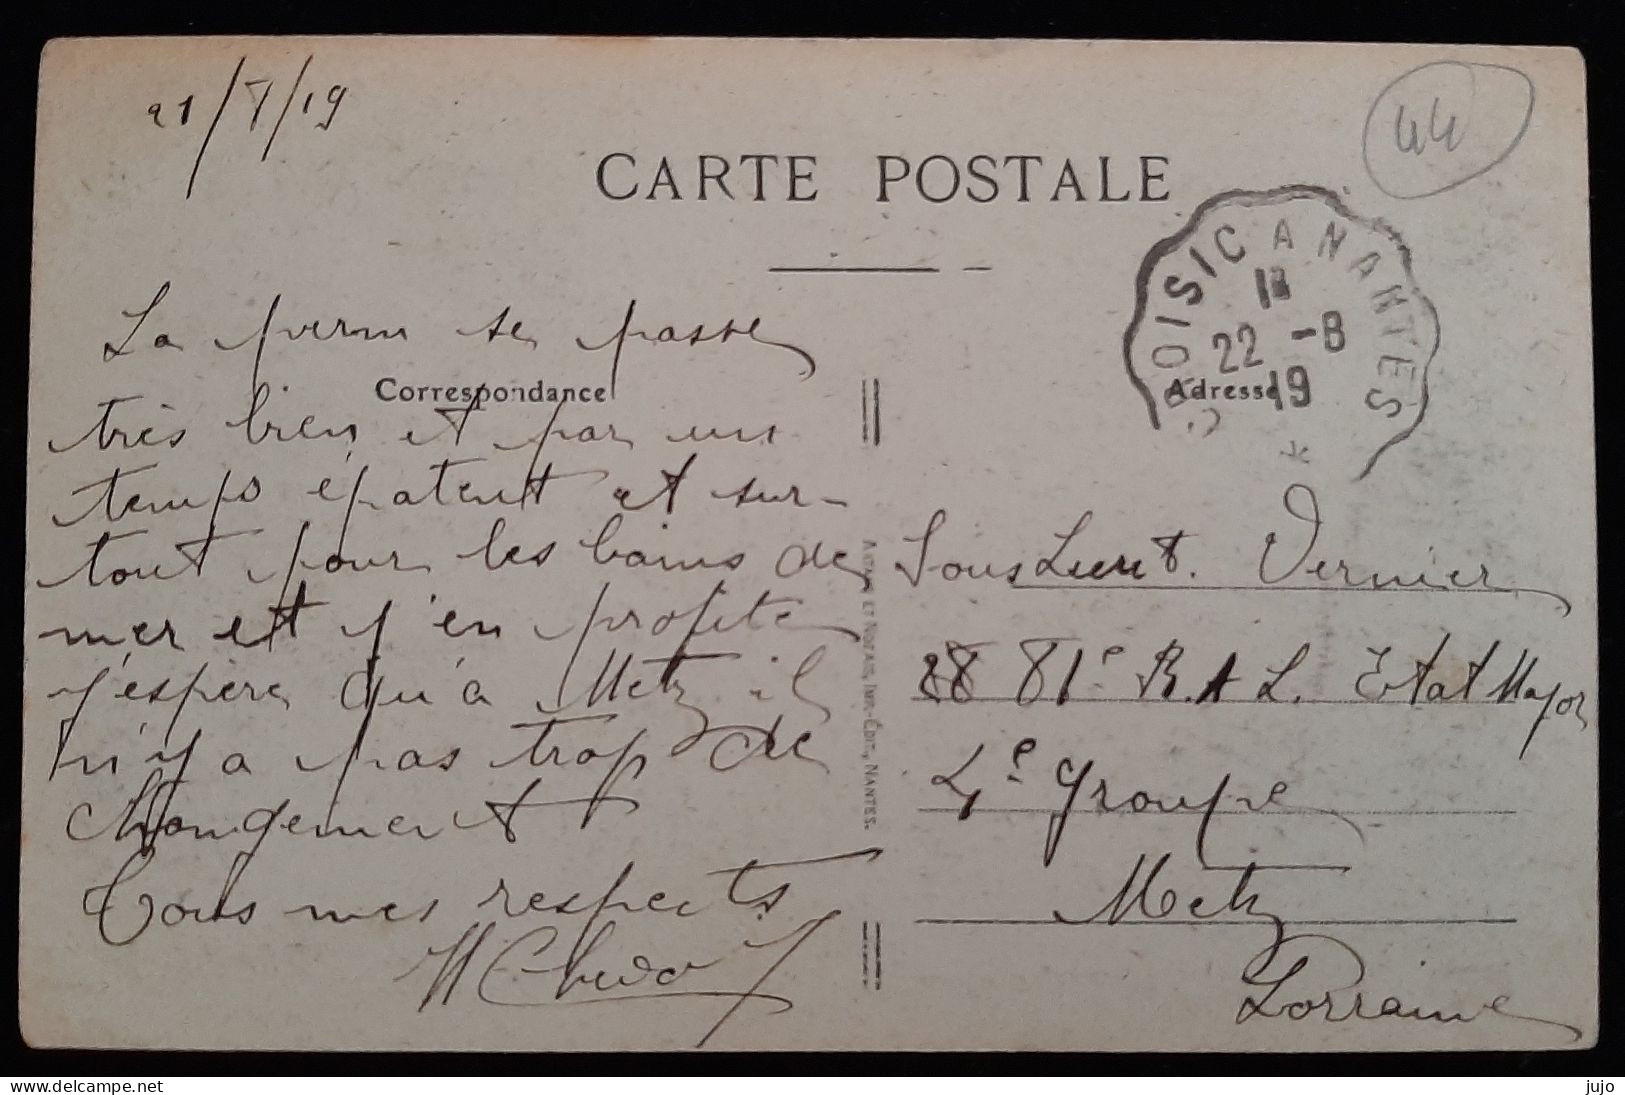 21/8/19
44
CARTE POSTALE
CROISIC A NANTES
22 - 8
19
*
Correspondance
Adresse
La perm se passe
très bien et par un
temps épatent et sur-
tout pour les bains de
mer et j'en profite
j'espère qu'à Metz il
n'y a pas trop de
Changement
Tous mes respects
ARTAUD ET NOZAIS, IMP.-ÉDIT., NANTES.
Sous Lieut. Vernier
81e R.A L. Etat Major
4e Groupe
Metz
Lorraine
www.delcampe.net
jujo